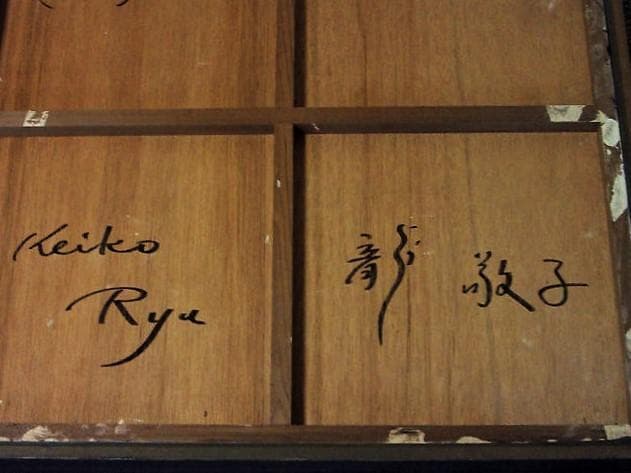 Keiko
Ryu
龍 敬子